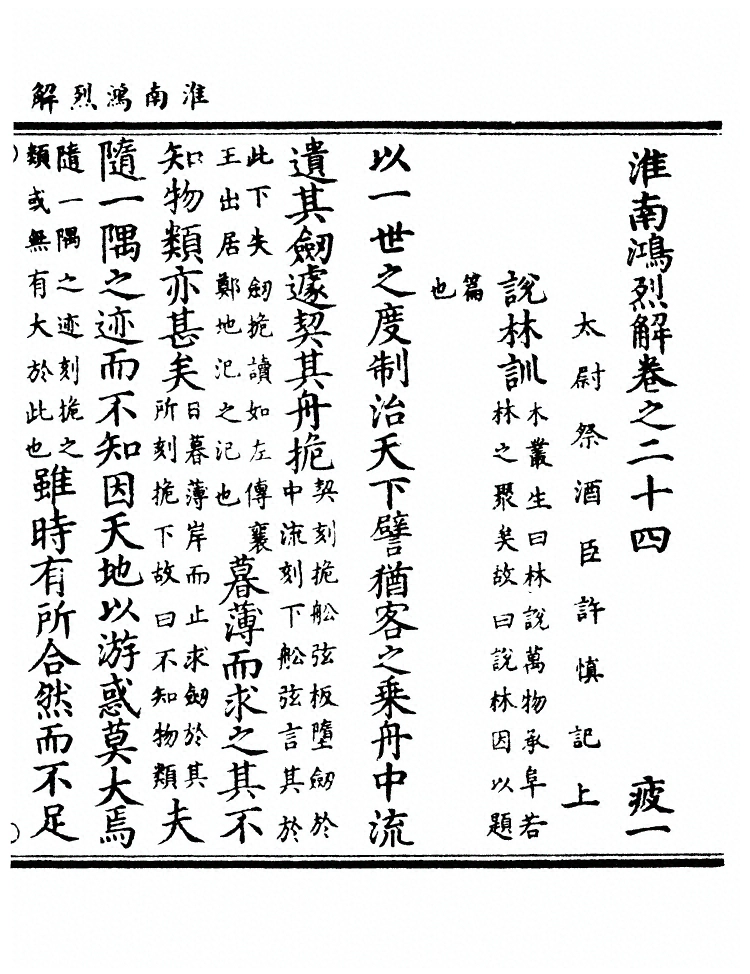 淮南鴻烈解
淮南鴻烈解卷之二十四 疲一
太尉祭酒臣許慎記上
說林訓
木叢生曰林說萬物承阜若
林之聚矣故曰說林因以題
篇
也
以一世之度制治天下譬猶客之乗舟中流
遺其劒遽契其舟桅
契刻桅舩弦板墮劒於
中流刻下舩弦言其於
此下失劒桅讀如左傳襄
王出居鄭地汜之汜也
暮薄而求之其不
知物類亦甚矣
日暮薄岸而止求劒於其
所刻桅下故曰不知物類
夫
隨一隅之迹而不知因天地以游惑莫大焉
隨一隅之迹刻桅之
類或無有大於此也
雖時有所合然而不足